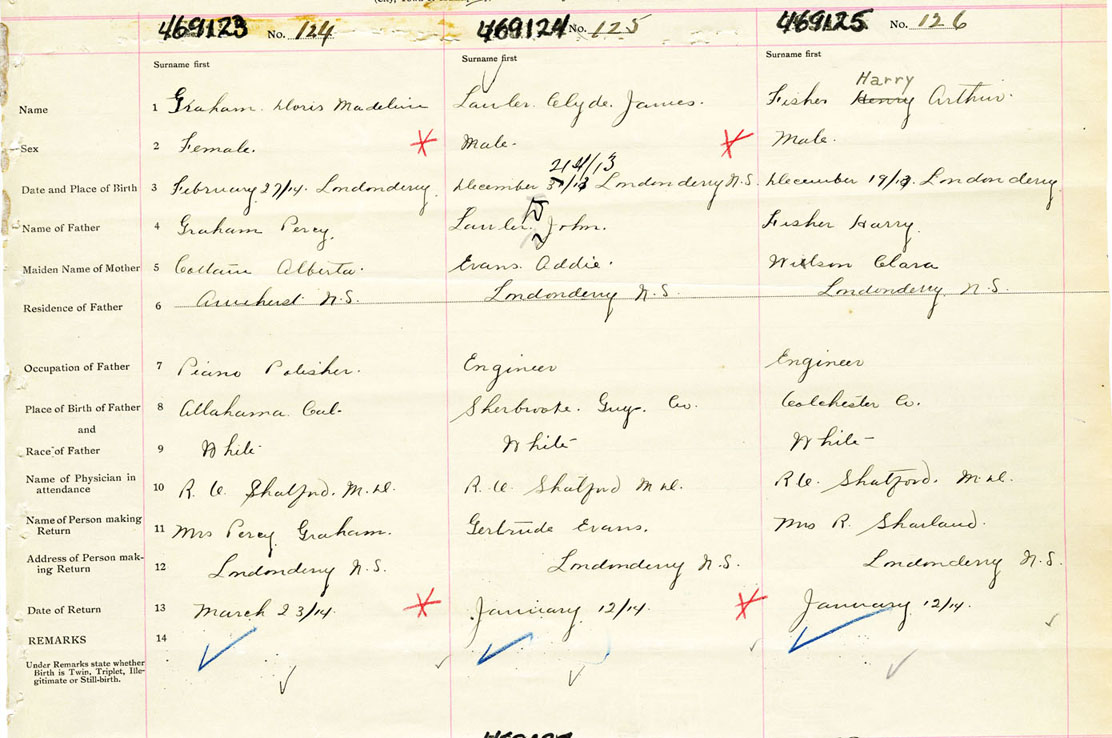 469123 No. 124 469124 No. 125 469125 No. 126
Surname first Surname first Surname first
Harry
Name 1 Graham Doris Madeline Lawler Clyde James. Fisher Henry Arthur.
Sex 2 Female. Male. Male.
24/13
Date and Place of Birth 3 February 27/14. Londonderry. December /13 Londonderry N.S. December 19/13. Londonderry
Name of Father 4 Graham Percy. Lawler John. Fisher Harry.
Maiden Name of Mother 5 Alberta. Evans Addie. Wilson Clara
Residence of Father 6 Amherst N.S. Londonderry N.S. Londonderry N.S.
Occupation of Father 7 Piano Polisher. Engineer Engineer
Place of Birth of Father 8 Allahama Cal. Sherbrooke. Guy. Co. Colchester Co.
and
Race of Father 9 White White White
Name of Physician in
attendance 10 R. U. Shatford. M.D. R. U. Shatford M.D. R U. Shatford. M.D.
Name of Person making
Return 11 Mrs Percy Graham. Gertrude Evans. Mrs R. Sharland.
Address of Person mak-
ing Return 12 Londonderry N.S. Londonderry N.S. Londonderry N.S.
Date of Return 13 March 23/14. January 12/14. January 12/14.
REMARKS 14
Under Remarks state whether
Birth is Twin, Triplet, Ille-
gitimate or Still-birth.